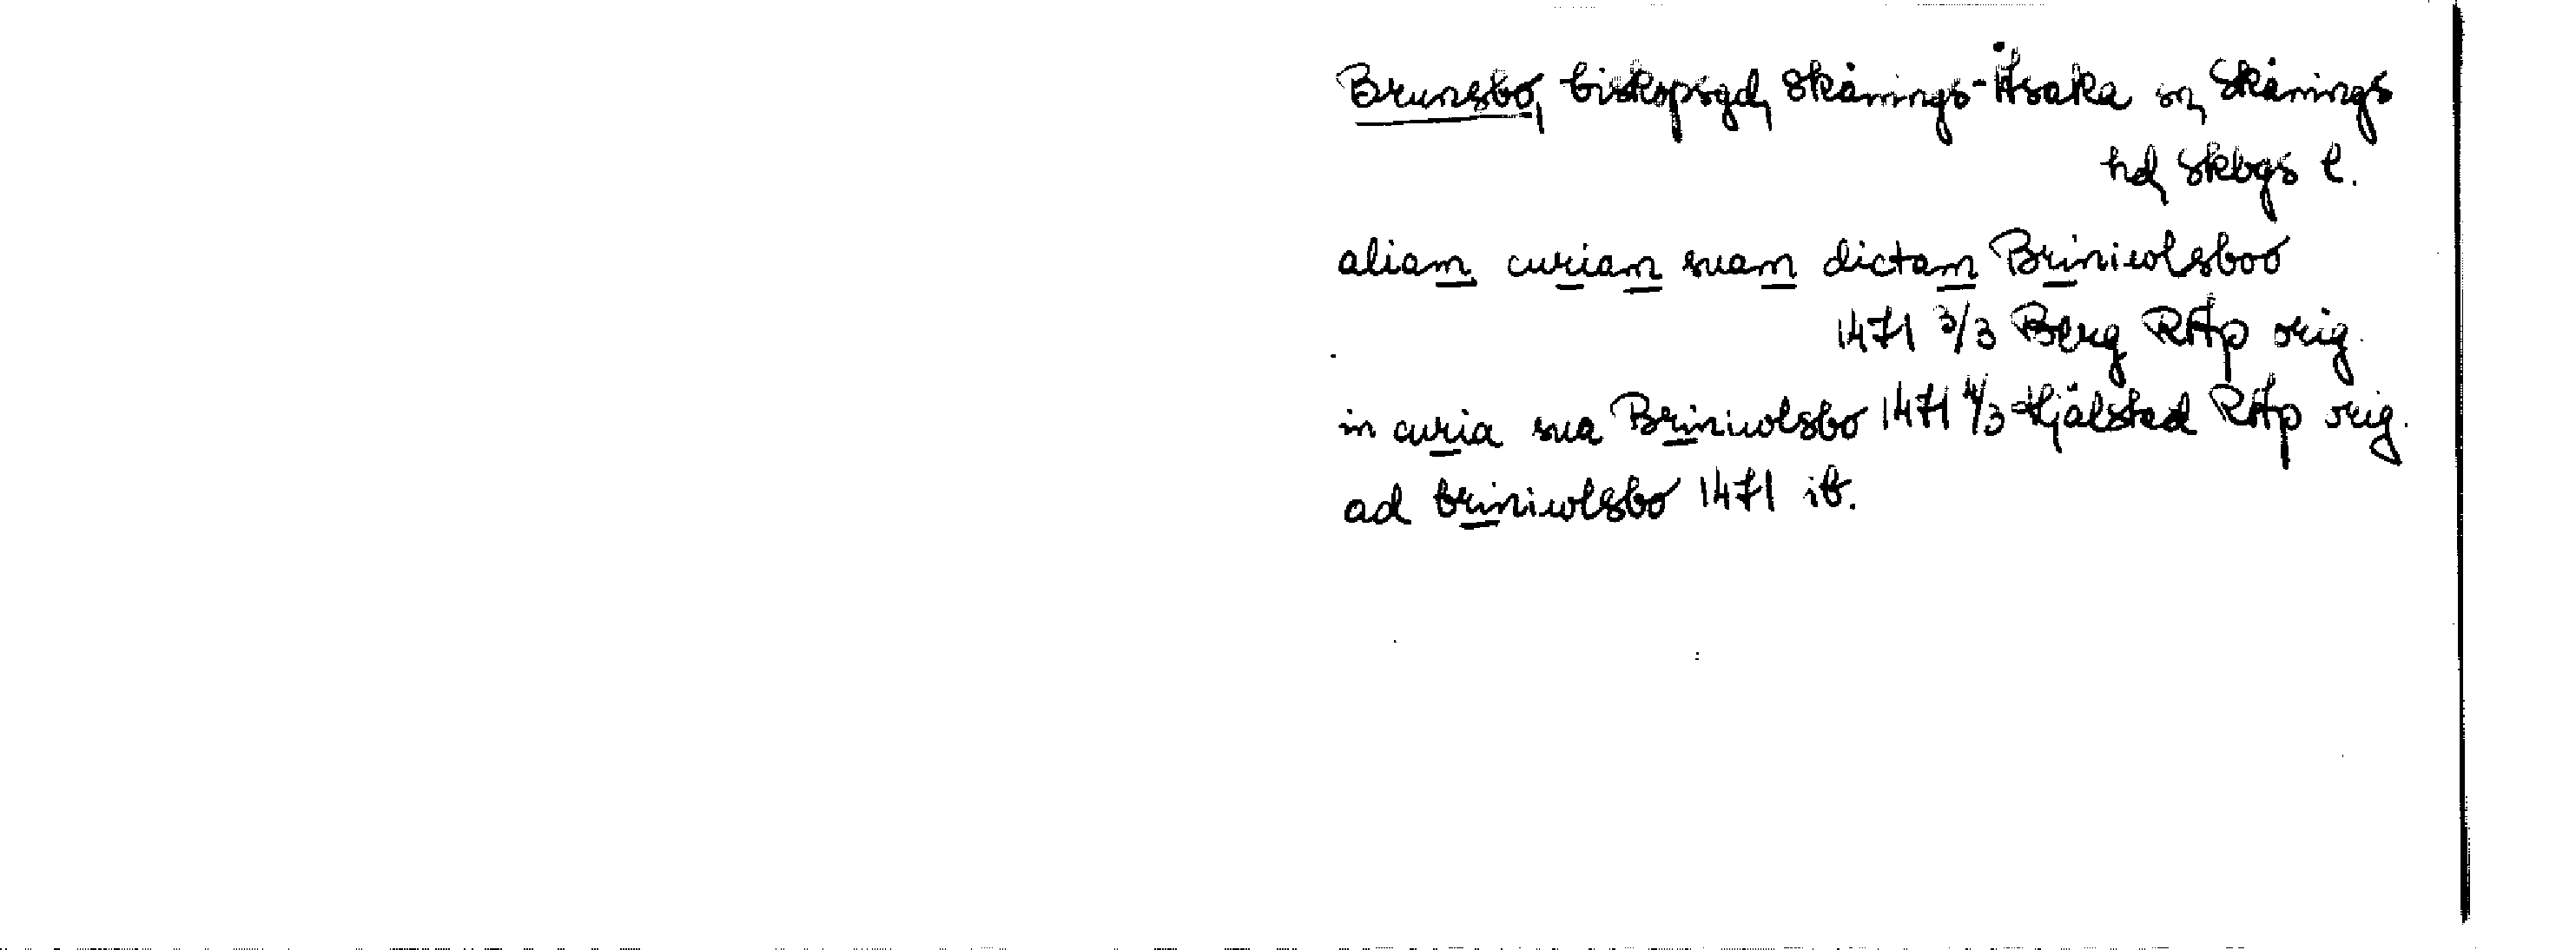 Brunsbo, biskopsgd, Skånings-Åsaka sn, Skånings
hd, Skbgs l.
aliam curiam suam dictam Briniwolsboo
1471 3/3 Berg RAp orig.
in curia sua Briniwolsbo 1471 4/3 Hjälstad RAp orig.
ad briniwlsbo 1471 ib.